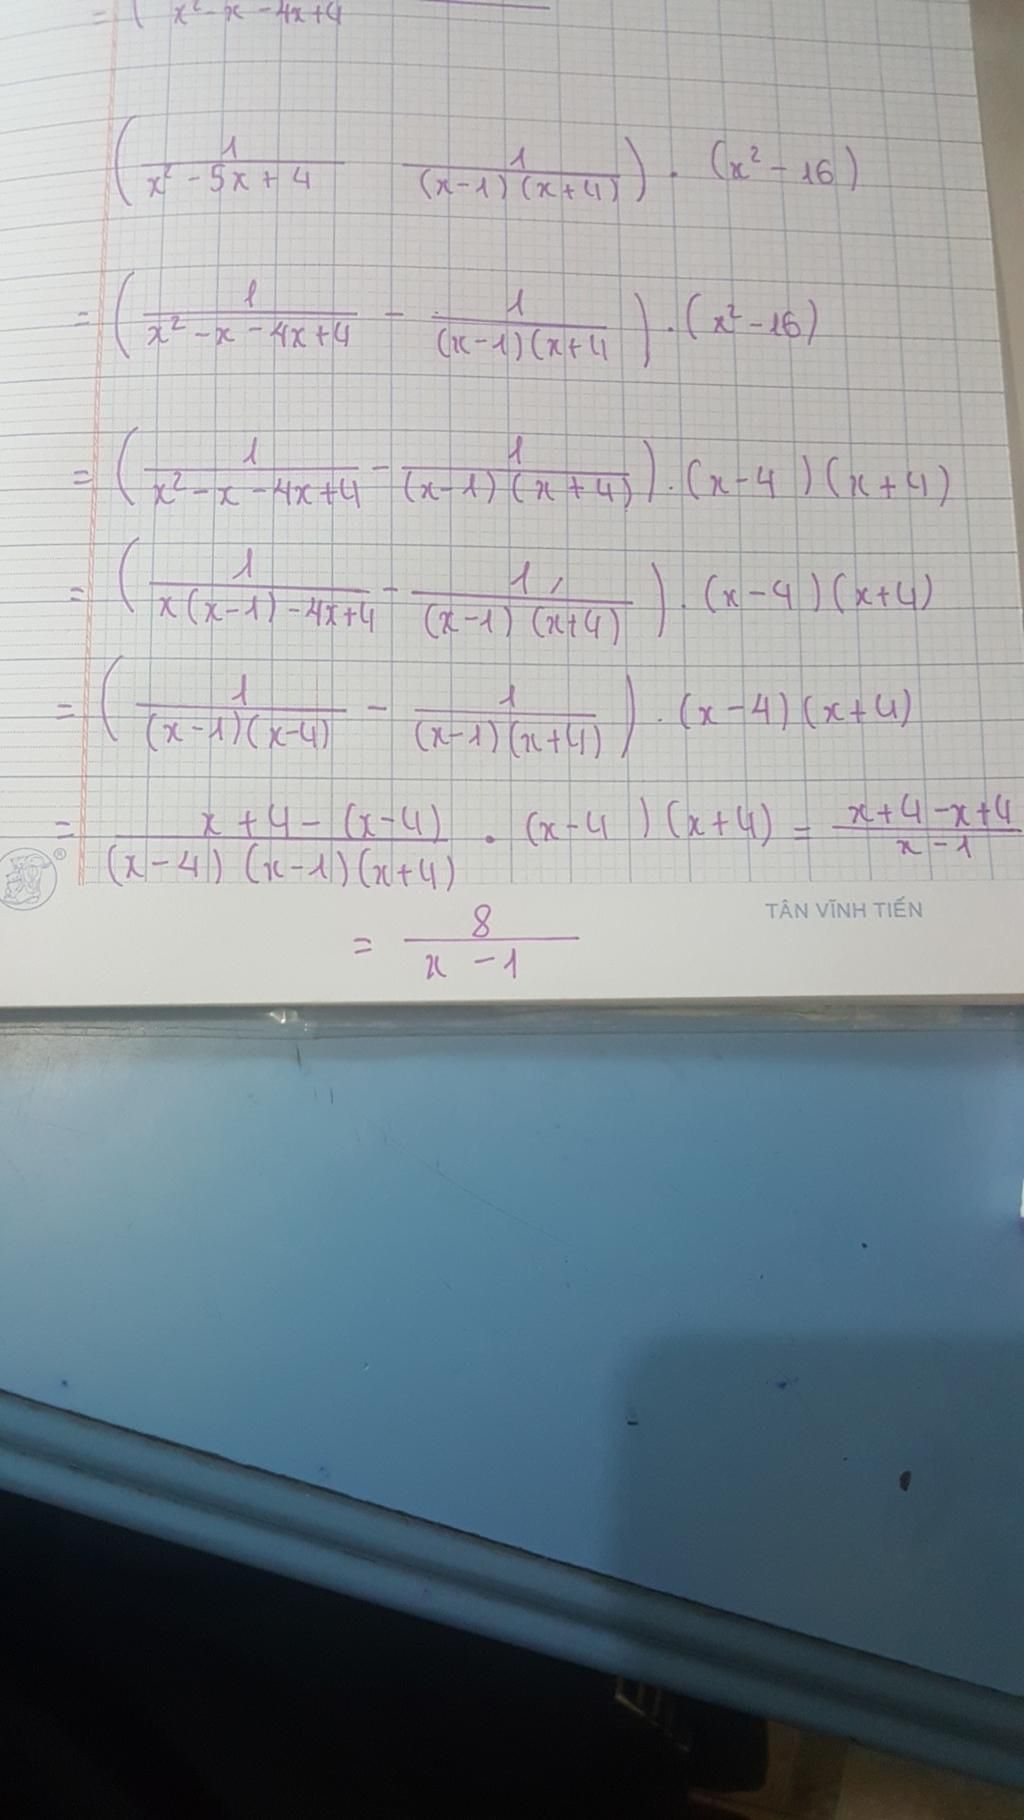 = ( x² - x - 4x + 4
( 1/(x² - 5x + 4) 1/((x-1)(x+4)) ) . (x² - 16)
= ( 1/(x² - x - 4x + 4) - 1/((x-1)(x+4) ) . (x² - 16)
= ( 1/(x² - x - 4x + 4) - 1/((x-1)(x+4)) ) . (x-4)(x+4)
= ( 1/(x(x-1) - 4x + 4) - 1/((x-1)(x+4)) ) . (x-4)(x+4)
= ( 1/((x-1)(x-4)) - 1/((x-1)(x+4)) ) . (x-4)(x+4)
= (x + 4 - (x-4))/((x-4)(x-1)(x+4)) . (x-4)(x+4) = (x+4-x+4)/(x-1)
®
TÂN VĨNH TIẾN
= 8/(x-1)